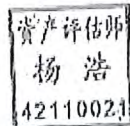 资产评估师
杨浩
42110021